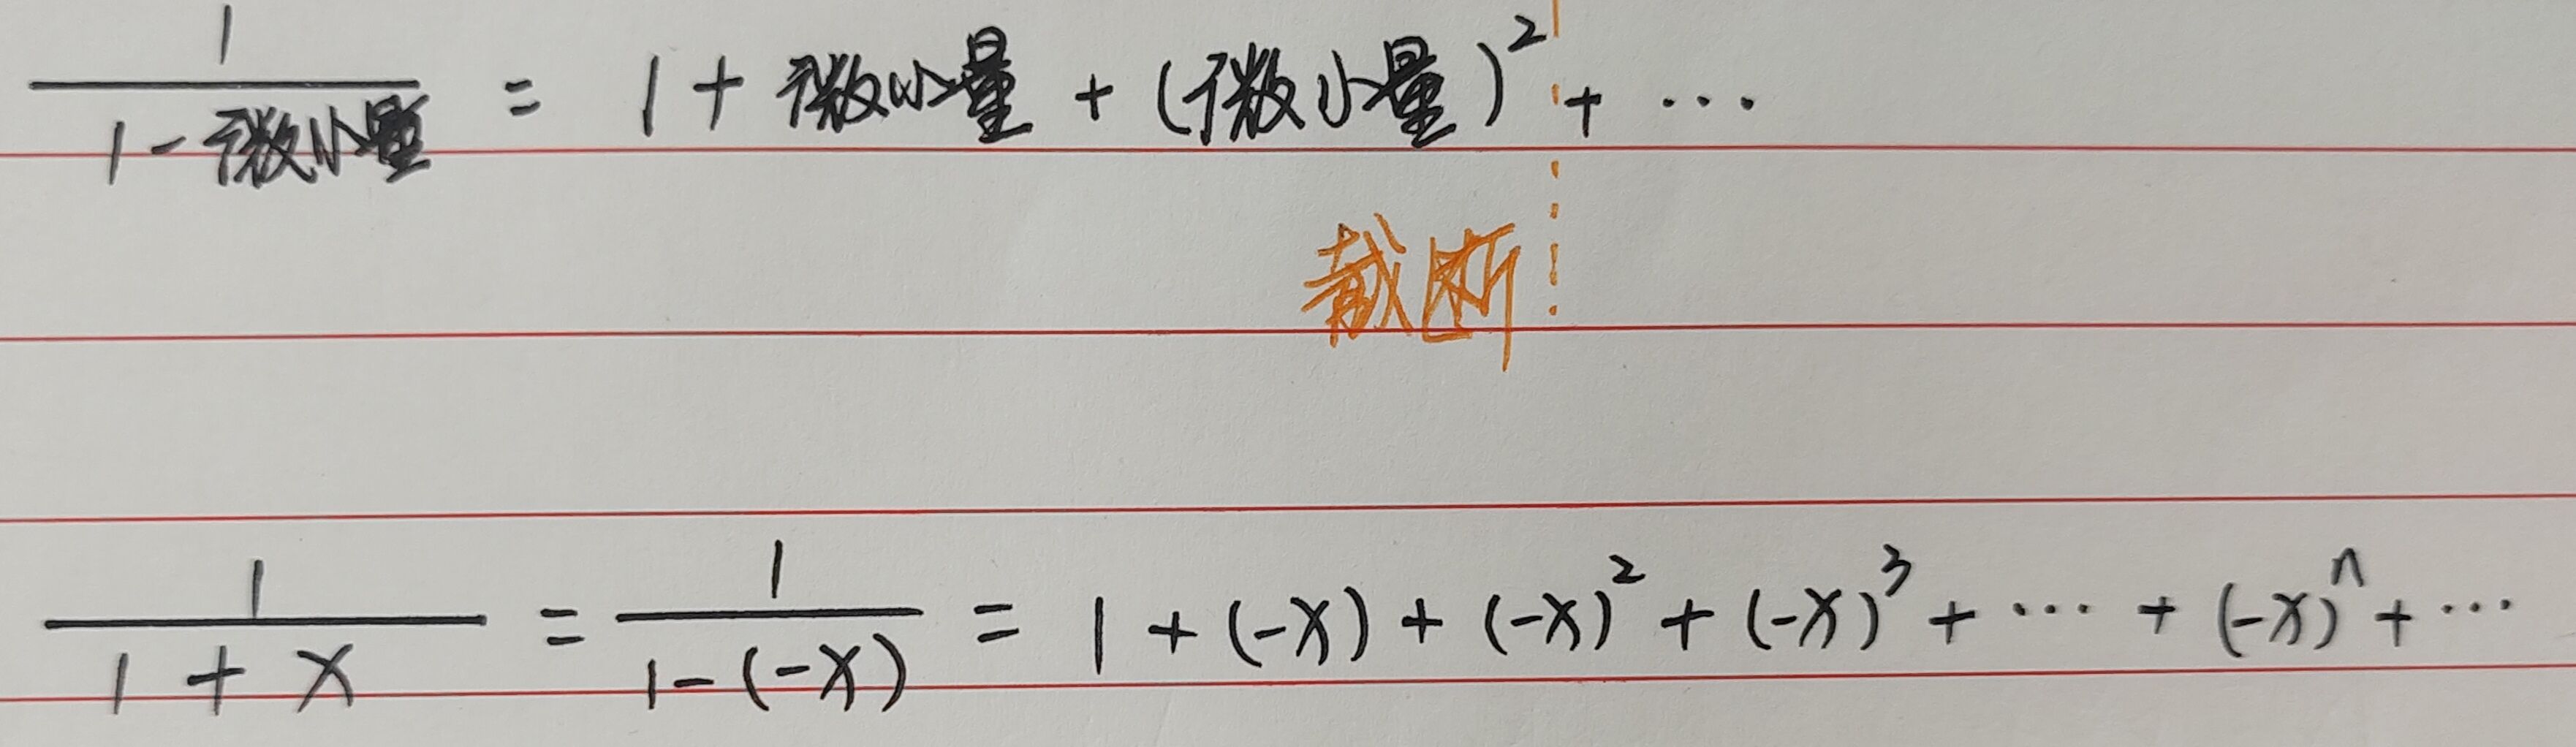 1/(1-微小量) = 1 + 微小量 + (微小量)² + ···
截断
1/(1+x) = 1/(1-(-x)) = 1 + (-x) + (-x)² + (-x)³ + ··· + (-x)ⁿ + ···